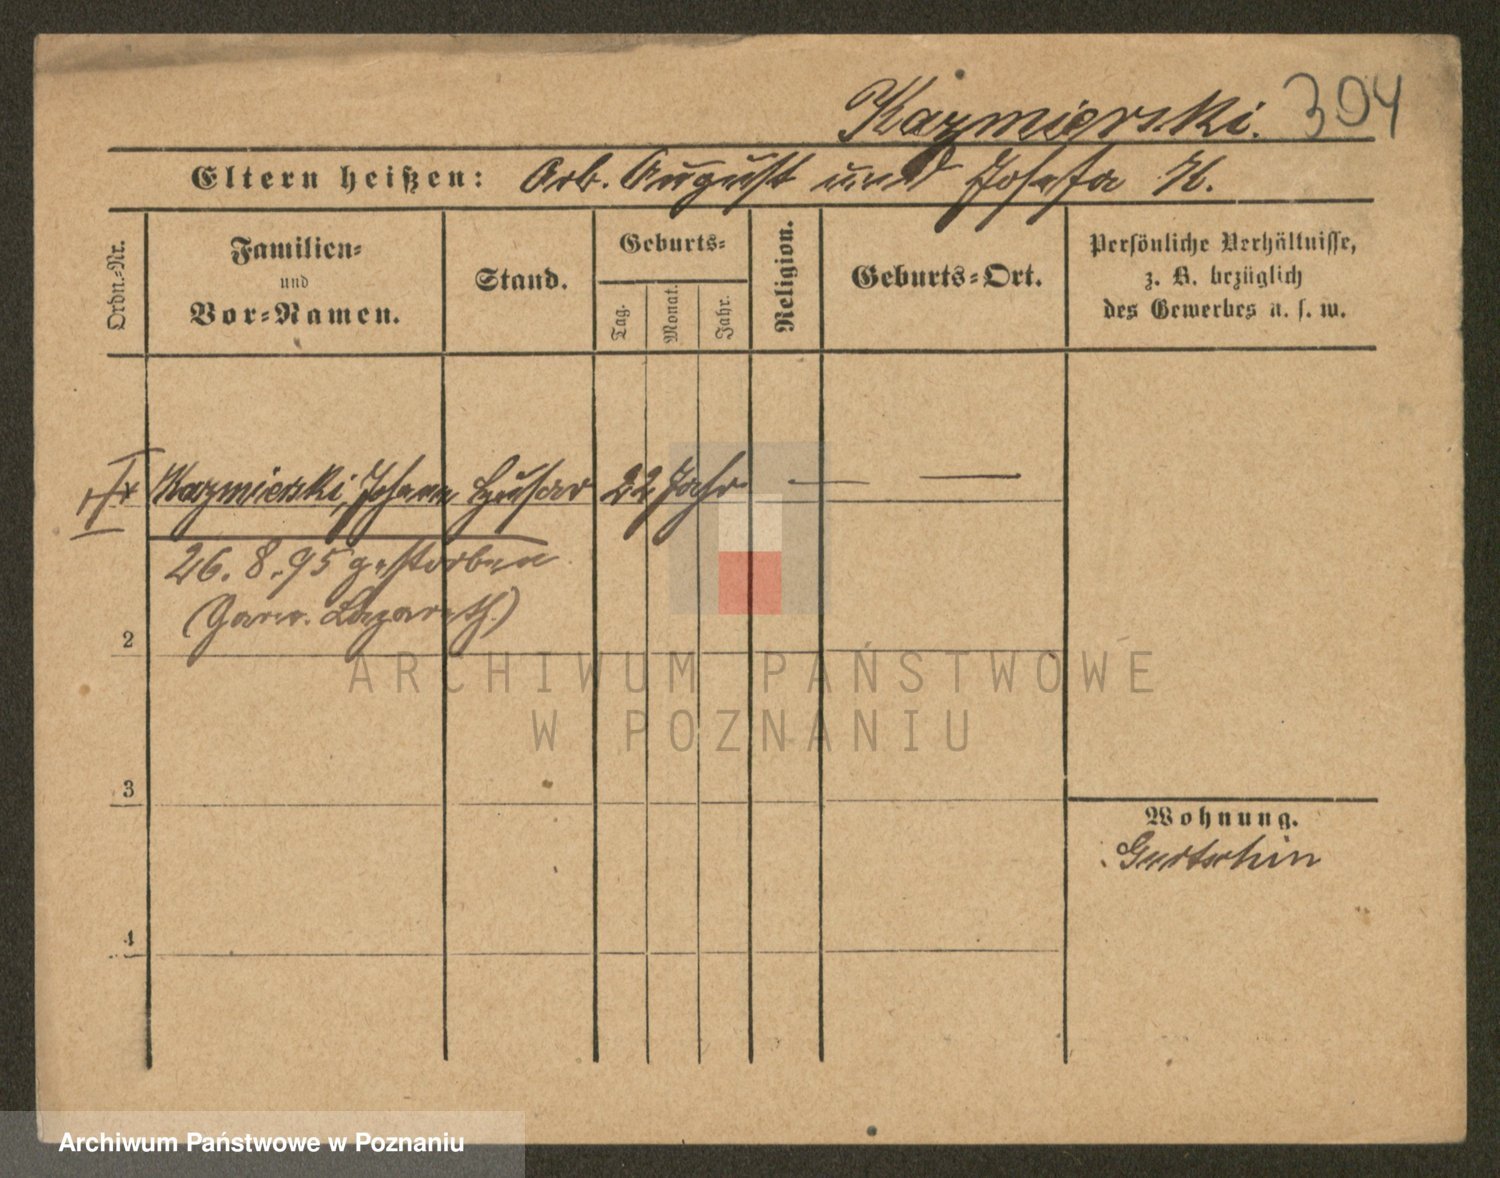 Kazmierski. 394
Eltern heißen: Arb. August und Josefa K.
Ordn.-Nr.
Familien-
und
Vor-Namen.
Stand.
Geburts-
Tag.
Monat.
Jahr.
Religion.
Geburts-Ort.
Persönliche Verhältnisse,
z. B. bezüglich
des Gewerbes u. s. w.
Kazmierski, Johann Husar 22 Jahr — —
26. 8. 95 gestorben
(Garn. Lazareth.)
2
3
4
Wohnung.
Gurtschin
ARCHIWUM PAŃSTWOWE
W POZNANIU
Archiwum Państwowe w Poznaniu